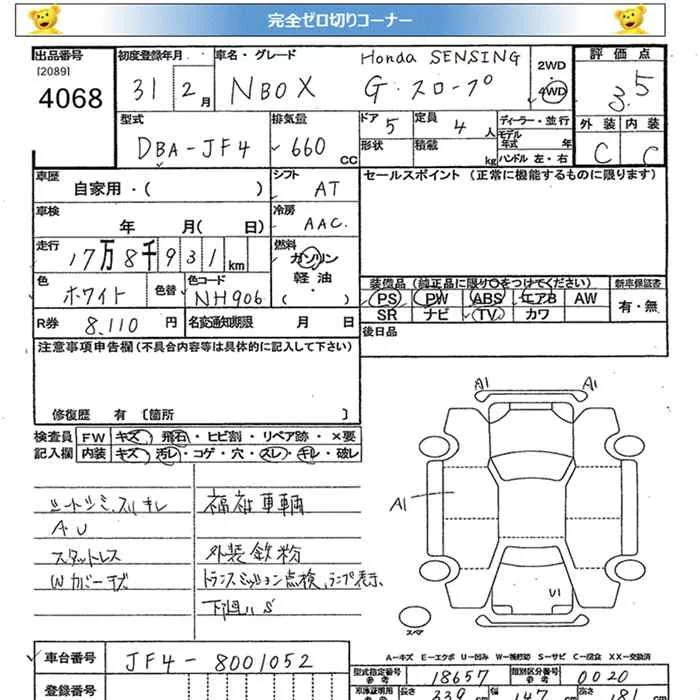 完全ゼロ切りコーナー
出品番号
[2089]
4068
初度登録年月
31 2月
車名・グレード
NBOX Honda SENSING
G・スロープ
2WD
・
4WD
評価点
3.5
外装 内装
C C
型式
DBA-JF4
排気量
660 CC
ドア 5
定員 4人
形状
積載 kg
ディーラー・並行
モデル年式 年
ハンドル 左・右
車歴
自家用・( )
シフト
AT
セールスポイント (正常に機能するものに限ります)
車検
年 月( 日)
冷房
AAC
走行
17万8千931km
燃料
ガソリン
軽油
( ・ )
色
ホワイト
色替
色コード
NH906
装備品 (純正品に限り○をつけてください)
新車保証書
PS PW ABS エアB AW
有・無
SR ナビ TV カワ
R券 8,110 円
名変通知期限 月 日
後日品
注意事項申告欄(不具合内容等は具体的に記入して下さい)
修復歴 有 〔箇所 〕
検査員 FW キズ・飛石・ヒビ割・リペア跡・×要
記入欄 内装 キズ・汚レ・コゲ・穴・スレ・キレ・破レ
シートシミ、スリキレ
AU
スタットレス
Wカバーキズ
福祉車輌
外装鉄粉
トランスミッション点検、ランプ表示、
下廻りS
A1 A1
A1
U1
スペア
A―キズ E―エクボ U―凹み W―補修跡 S―サビ C―腐食 XX―交換済
車台番号 JF4-8001052
登録番号
型式指定番号
参考
18657
類別区分番号
参考
0020
長さ 339 cm 幅 147 cm 高さ 181 cm